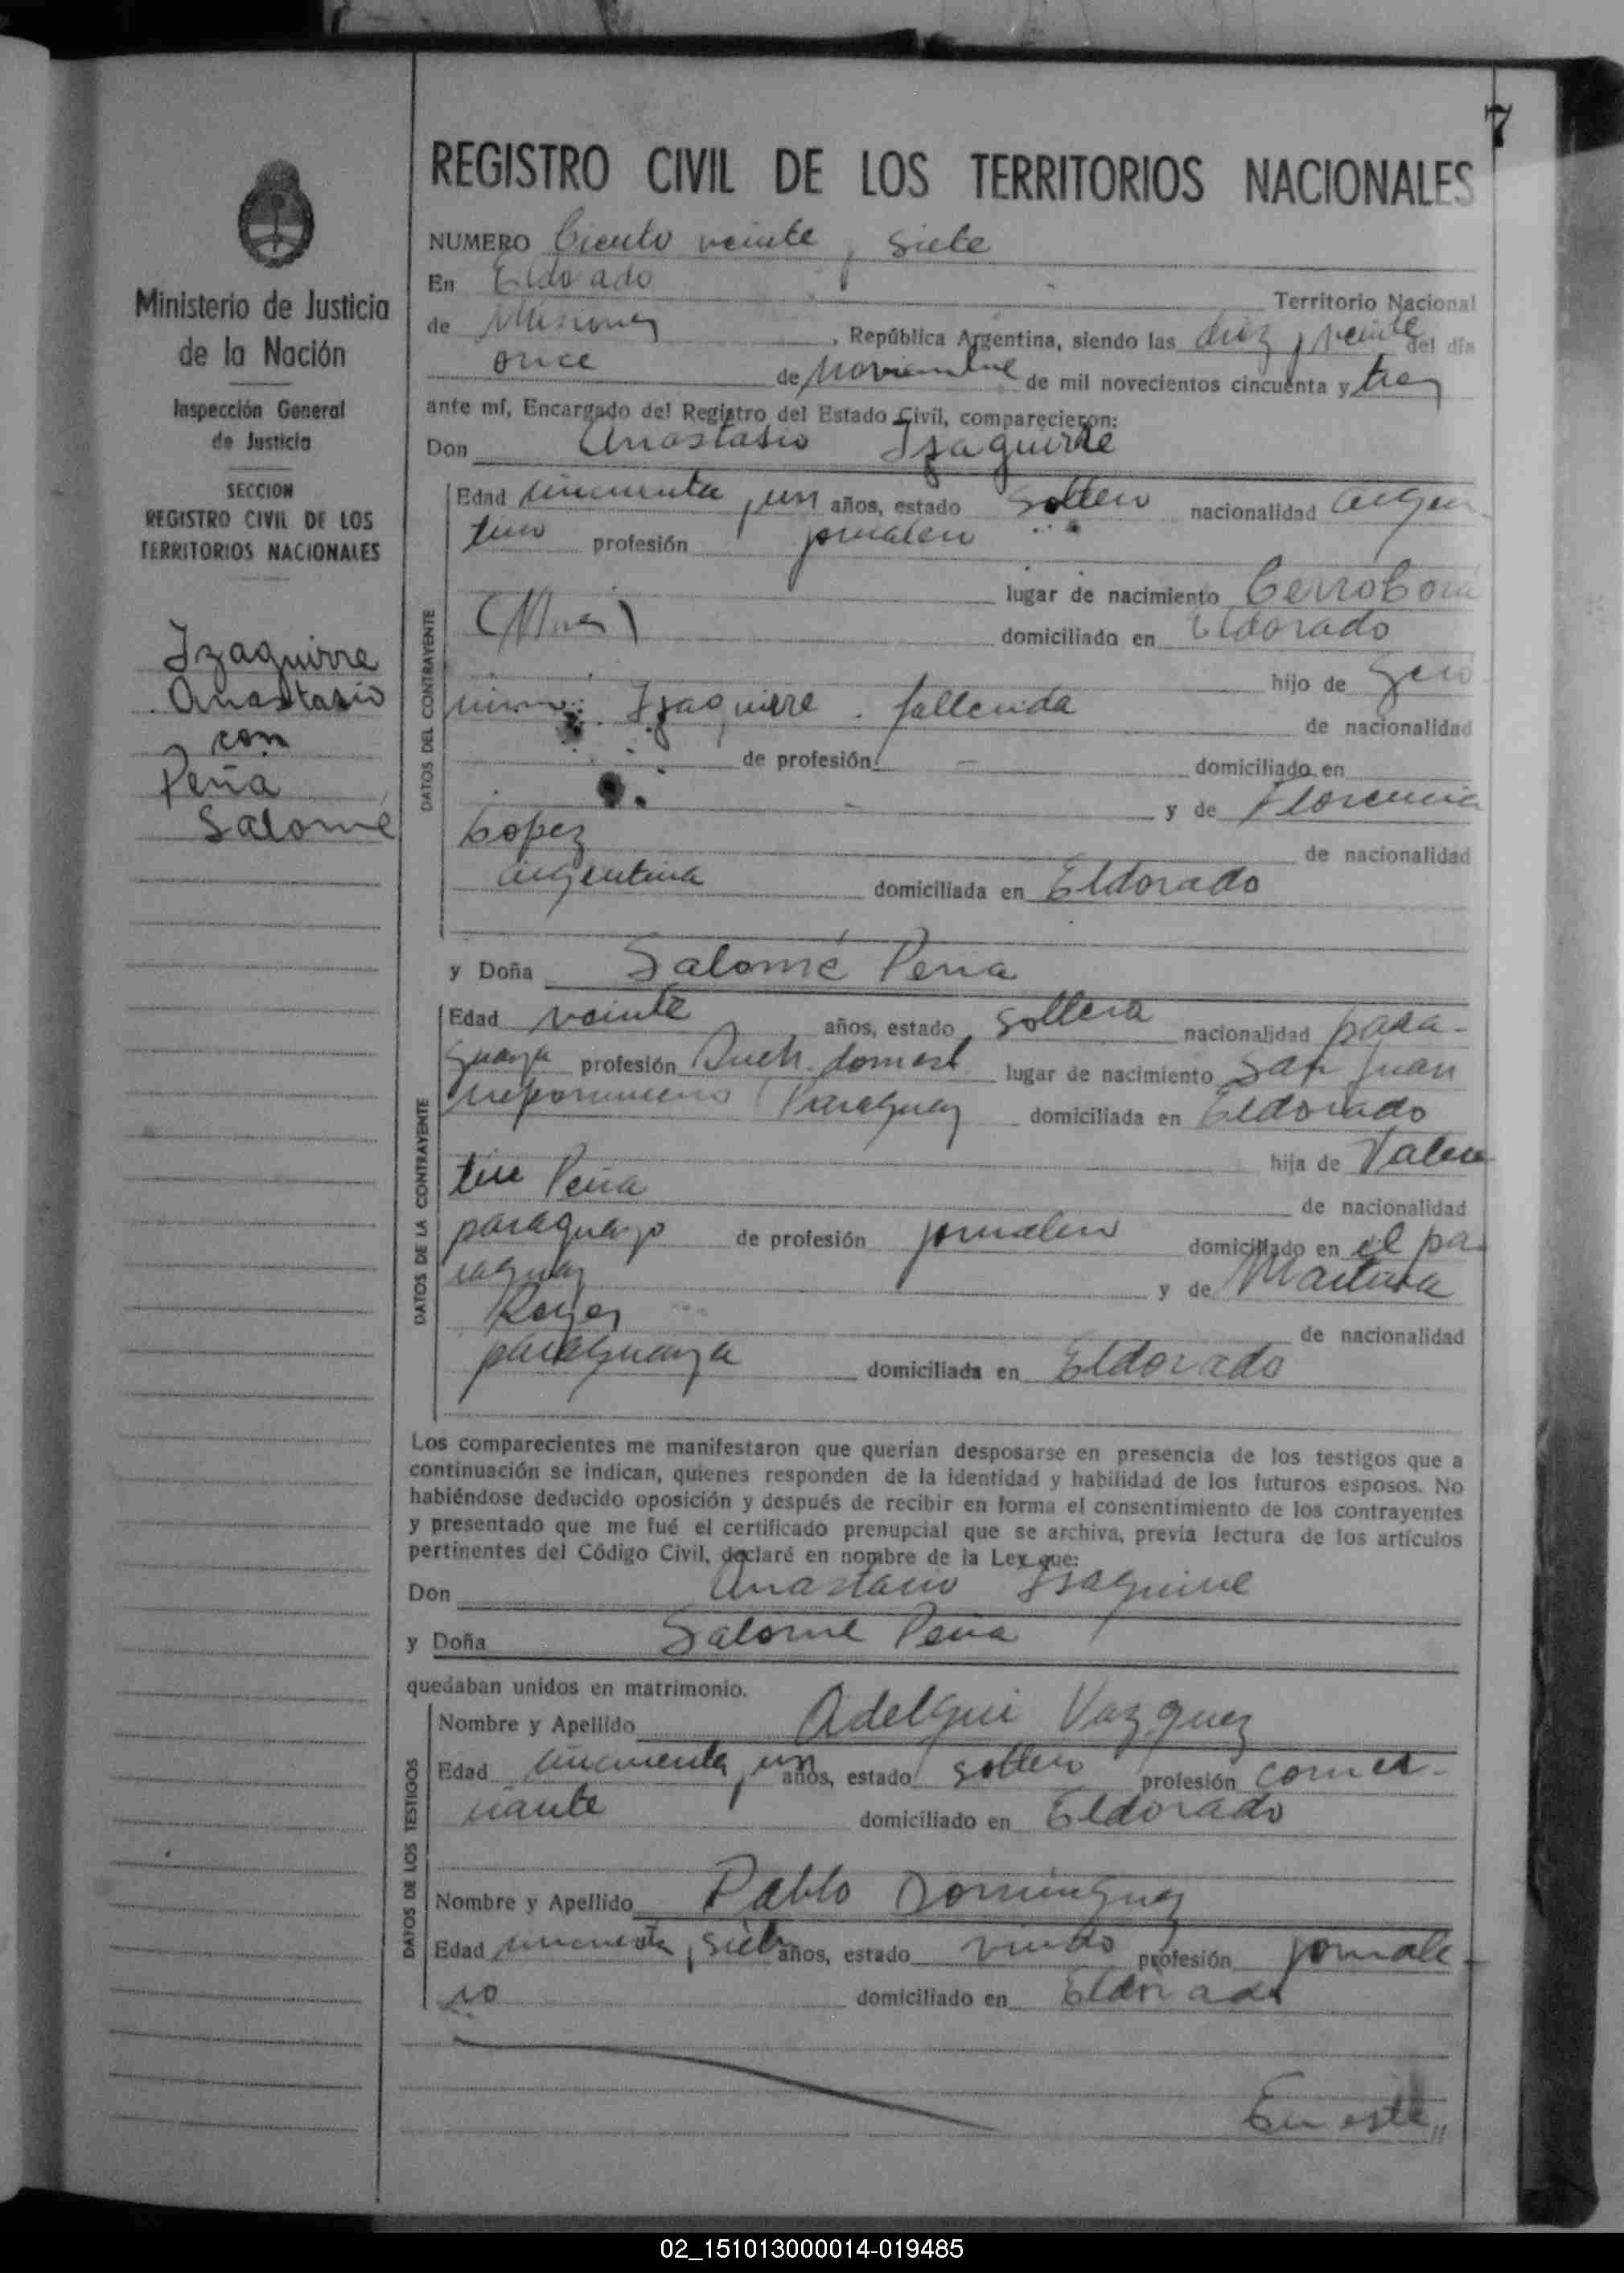 7
REGISTRO CIVIL DE LOS TERRITORIOS NACIONALES
Ministerio de Justicia
de la Nación
Inspección General
de Justicia
SECCION
REGISTRO CIVIL DE LOS
TERRITORIOS NACIONALES
Izaguirre
Anastasio
con
Peña
Salomé
NUMERO Ciento veinte y siete
En Eldorado
Territorio Nacional
de Misiones, República Argentina, siendo las diez y veinte del día
once de noviembre de mil novecientos cincuenta y tres
ante mí, Encargado del Registro del Estado Civil, comparecieron:
Don Anastasio Izaguirre
DATOS DEL CONTRAYENTE
Edad cincuenta y un años, estado soltero nacionalidad argen-
tino profesión jornalero
lugar de nacimiento Cerro Corá
(Mnes) domiciliado en Eldorado
hijo de Gero
nimo Izaguirre. fallecida
de nacionalidad
de profesión — domiciliado en
y de Florencia
Lopez
de nacionalidad
argentina domiciliada en Eldorado
y Doña Salomé Peña
DATOS DE LA CONTRAYENTE
Edad veinte años, estado soltera nacionalidad para-
guaya profesión Queh. domest lugar de nacimiento San Juan
Nepomuceno (Paraguay domiciliada en Eldorado
hija de Valen
tin Peña
de nacionalidad
paraguayo de profesión jornalero domiciliado en el pa-
raguay y de Martina
Reyes
de nacionalidad
paraguaya domiciliada en Eldorado
Los comparecientes me manifestaron que querían desposarse en presencia de los testigos que a
continuación se indican, quienes responden de la identidad y habilidad de los futuros esposos. No
habiéndose deducido oposición y después de recibir en forma el consentimiento de los contrayentes
y presentado que me fué el certificado prenupcial que se archiva, previa lectura de los artículos
pertinentes del Código Civil, declaré en nombre de la Ley que:
Don Anastasio Izaguirre
y Doña Salomé Peña
quedaban unidos en matrimonio.
DATOS DE LOS TESTIGOS
Nombre y Apellido Adelqui Vazquez
Edad cincuenta y un años, estado soltero profesión comer-
ciante domiciliado en Eldorado
Nombre y Apellido Pablo Dominguez
Edad cincuenta y siete años, estado viudo profesión jornale-
ro domiciliado en Eldorado
En este //
02_151013000014-019485